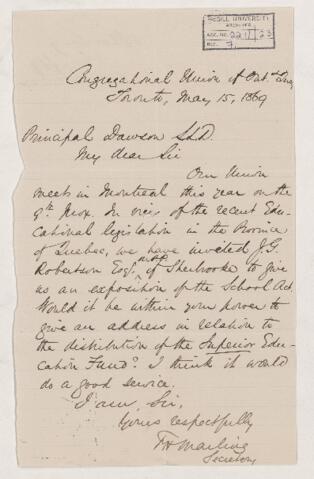 McGILL UNIVERSITY
ARCHIVES
ACC. NO. 2211/23
REF. 7
Congregational Union of Ont. & Que,
Toronto, May 15, 1869
Principal Dawson LL.D.
My dear Sir
Our Union
meets in Montreal this year on the
9th prox. In view of the recent Edu-
cational legislation in the Province
of Quebec, we have invited J.G.
Robertson Esq. M.P.P. of Sherbrooke to give
us an exposition of the School Act.
Would it be within your power to
give an address in relation to
the distribution of the Superior Edu-
cation Fund? I think it would
do a good service.
I am, Sir,
Yours respectfully
F H Marling
Secretary